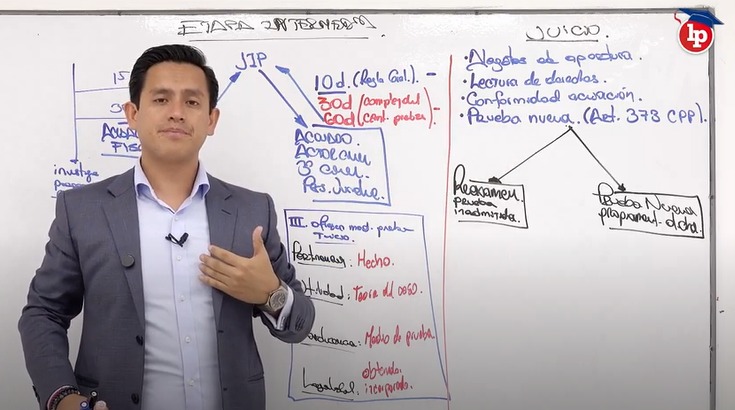 ETAPA INTERMEDIA
JIP
15
30
10 d. (Regla Gral.)
30d (complejidad
60d cant. pruebas)
ACUSADO.
ACTOR CIVIL
3° CIVIL
PERS. JURÍDICA
III. Ofrecen med. prueba
Juicio.
Pertinencia: Hecho.
Utilidad: Teoría del caso.
Conducencia: Medio de prueba
Legalidad: obtenido.
incorporado.
JUICIO
• Alegatos de apertura.
• Lectura de derechos.
• Conformidad acusación.
• Prueba nueva. (Art. 373 CPP).
Reexamen.
prueba
inadmitida.
Prueba Nueva
propiament. dicha.
lp